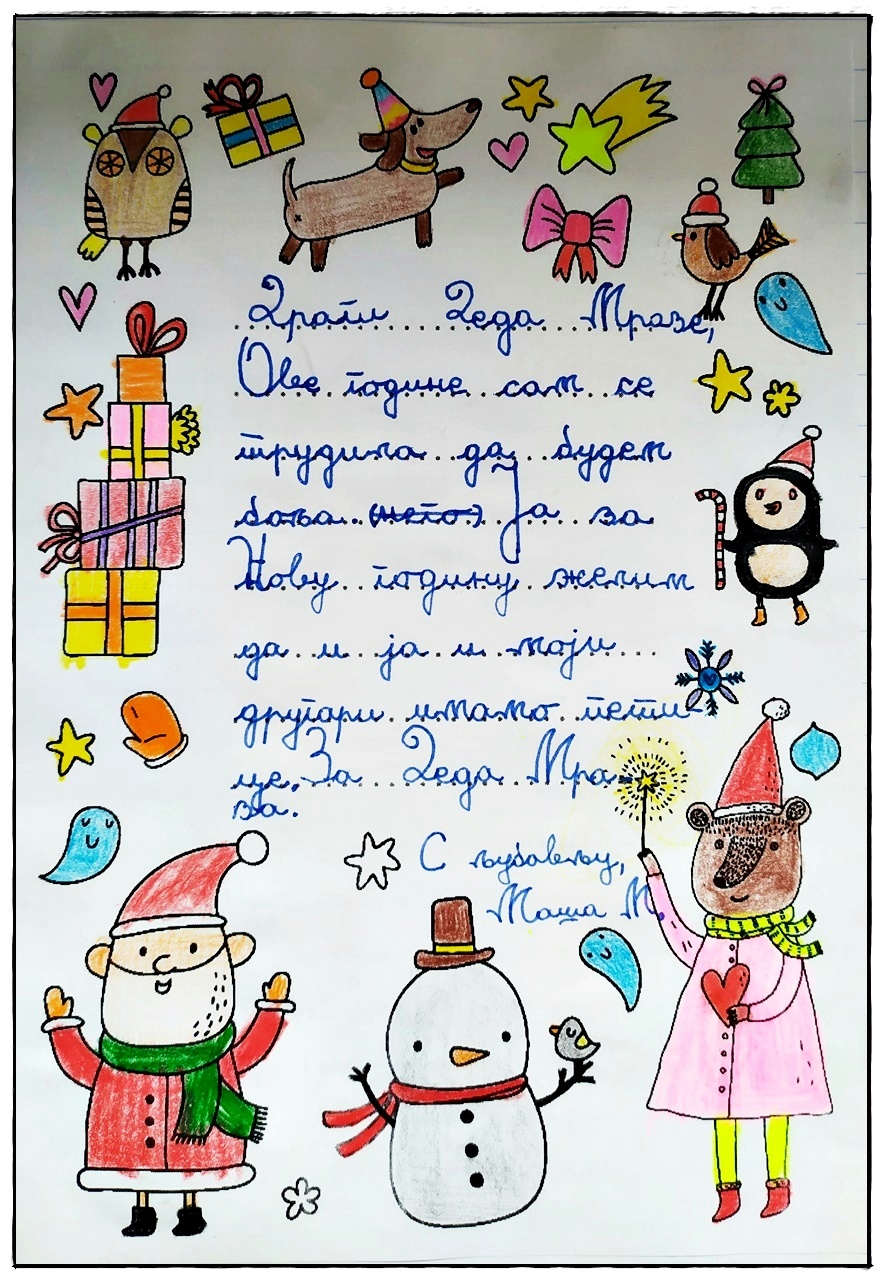 Драги Деда Мразе,
Ове године сам се
трудила да будем
боља (него) Ја за
Нову годину желим
да и ја и моји
другари имамо пети-
це. За Деда Мра-
за.
С љубављу,
Маша М.